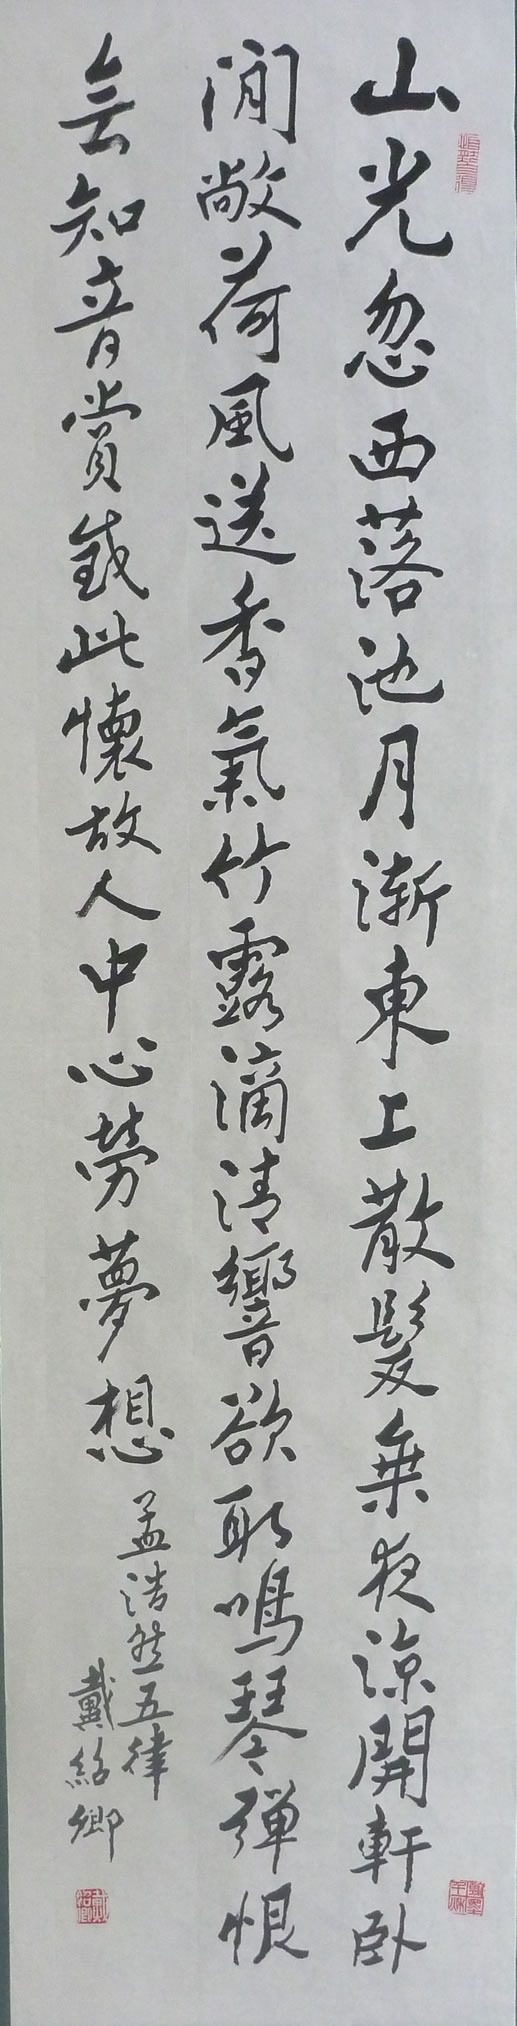 山光忽西落池月漸東上散髮乗夜涼開軒卧
閒敞荷風送香氣竹露滴清響欲取鳴琴彈恨
無知音賞感此懷故人中心勞夢想
孟浩然五律
戴紹卿